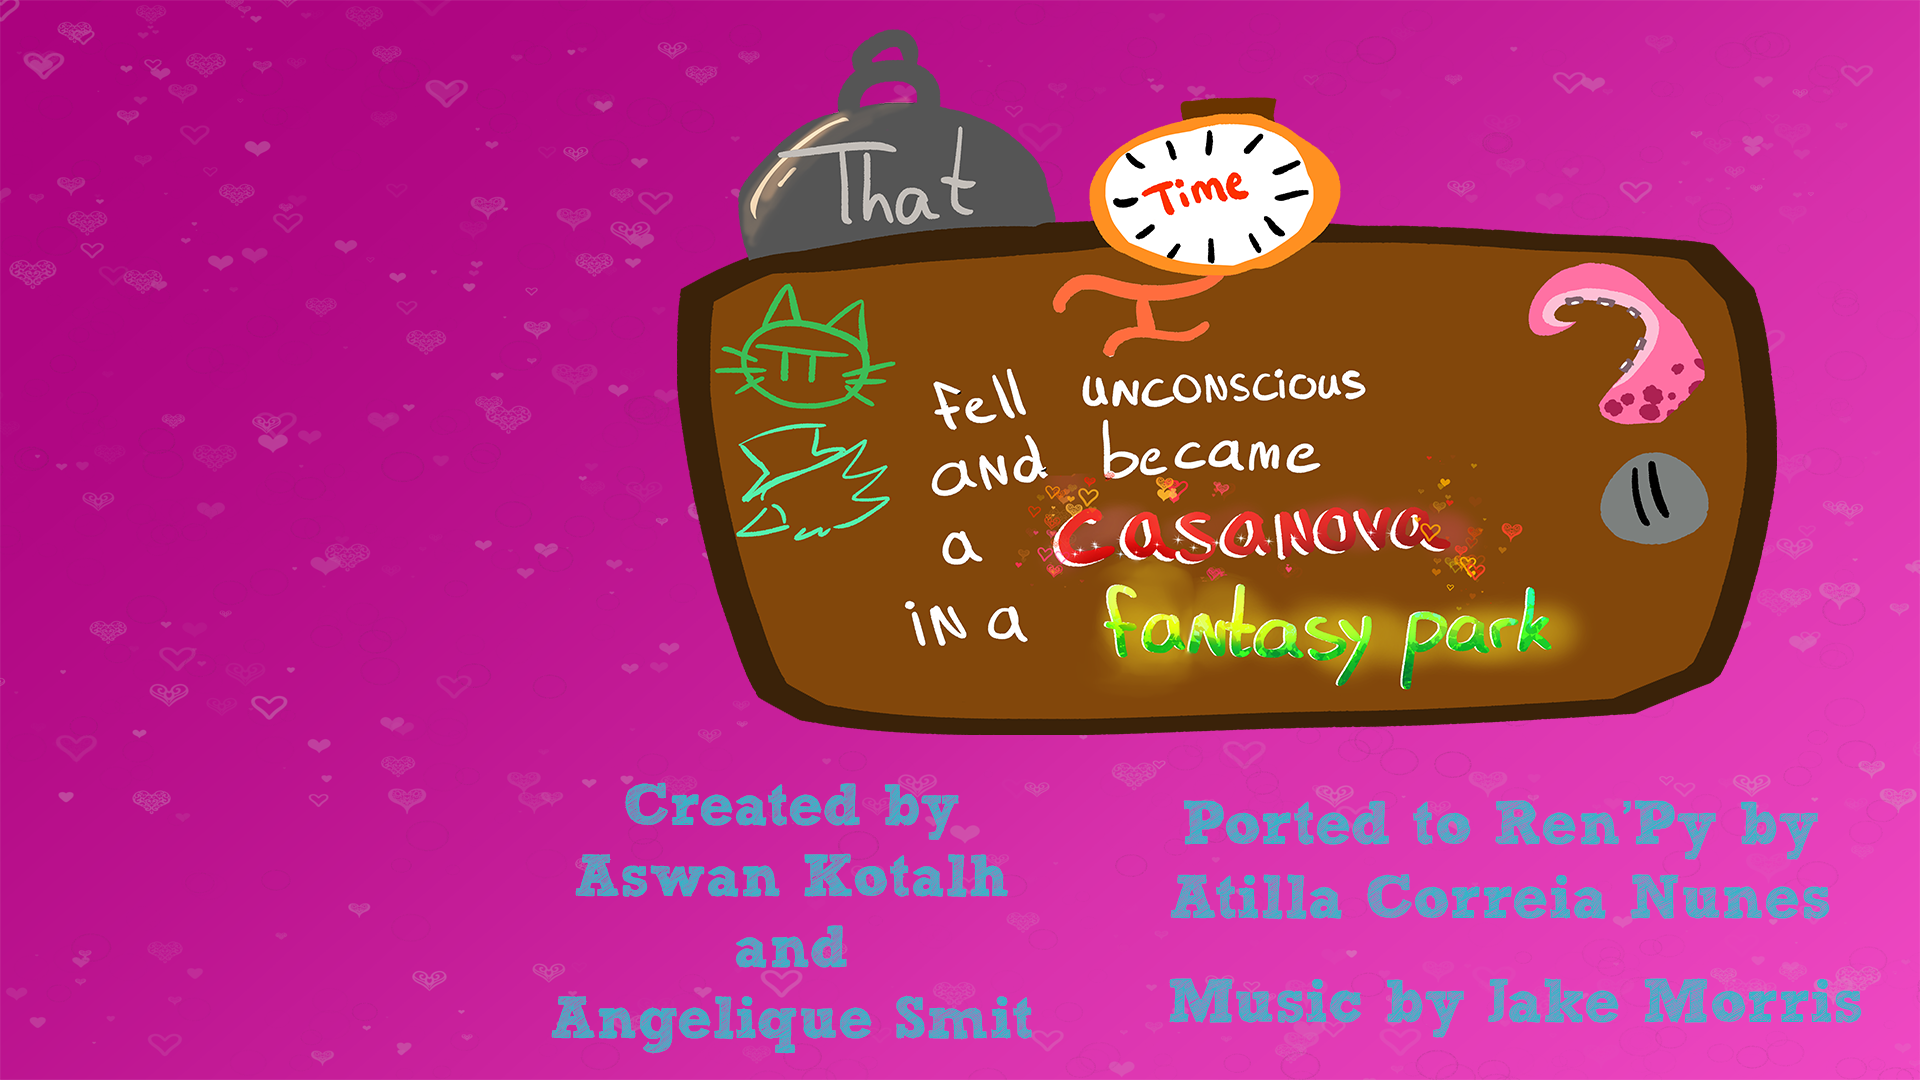 That
Time
I
fell unconscious
and became
a casanova
in a fantasy park
Created by
Aswan Kotalh
and
Angelique Smit
Ported to Ren'Py by
Atilla Correia Nunes
Music by Jake Morris